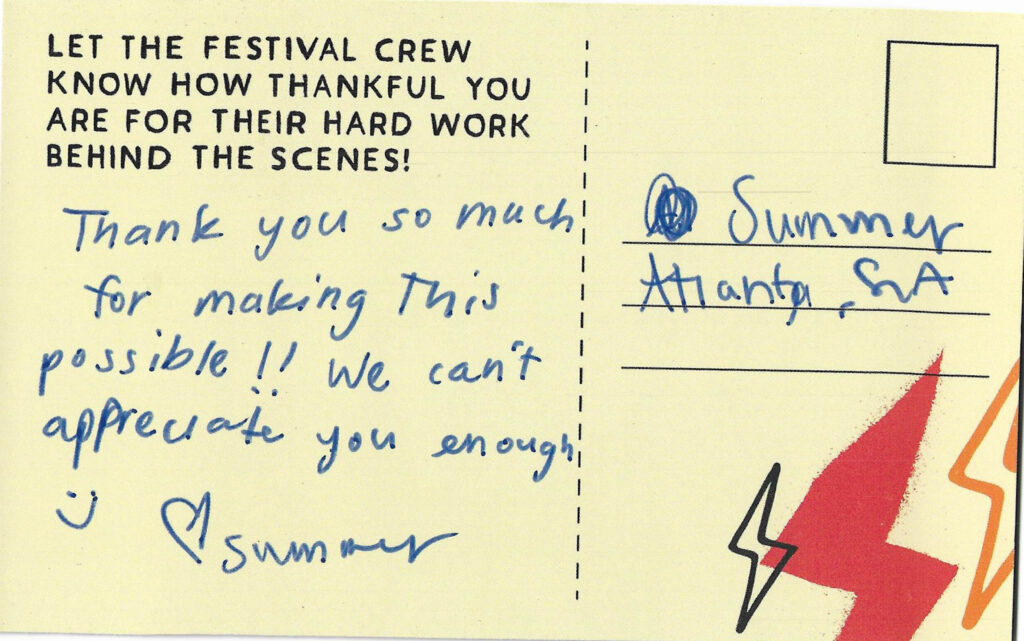 LET THE FESTIVAL CREW
KNOW HOW THANKFUL YOU
ARE FOR THEIR HARD WORK
BEHIND THE SCENES!
Thank you so much
for making This
possible!! We can't
appreciate you enough
:) ♡ summer
Summer
Atlanta, GA